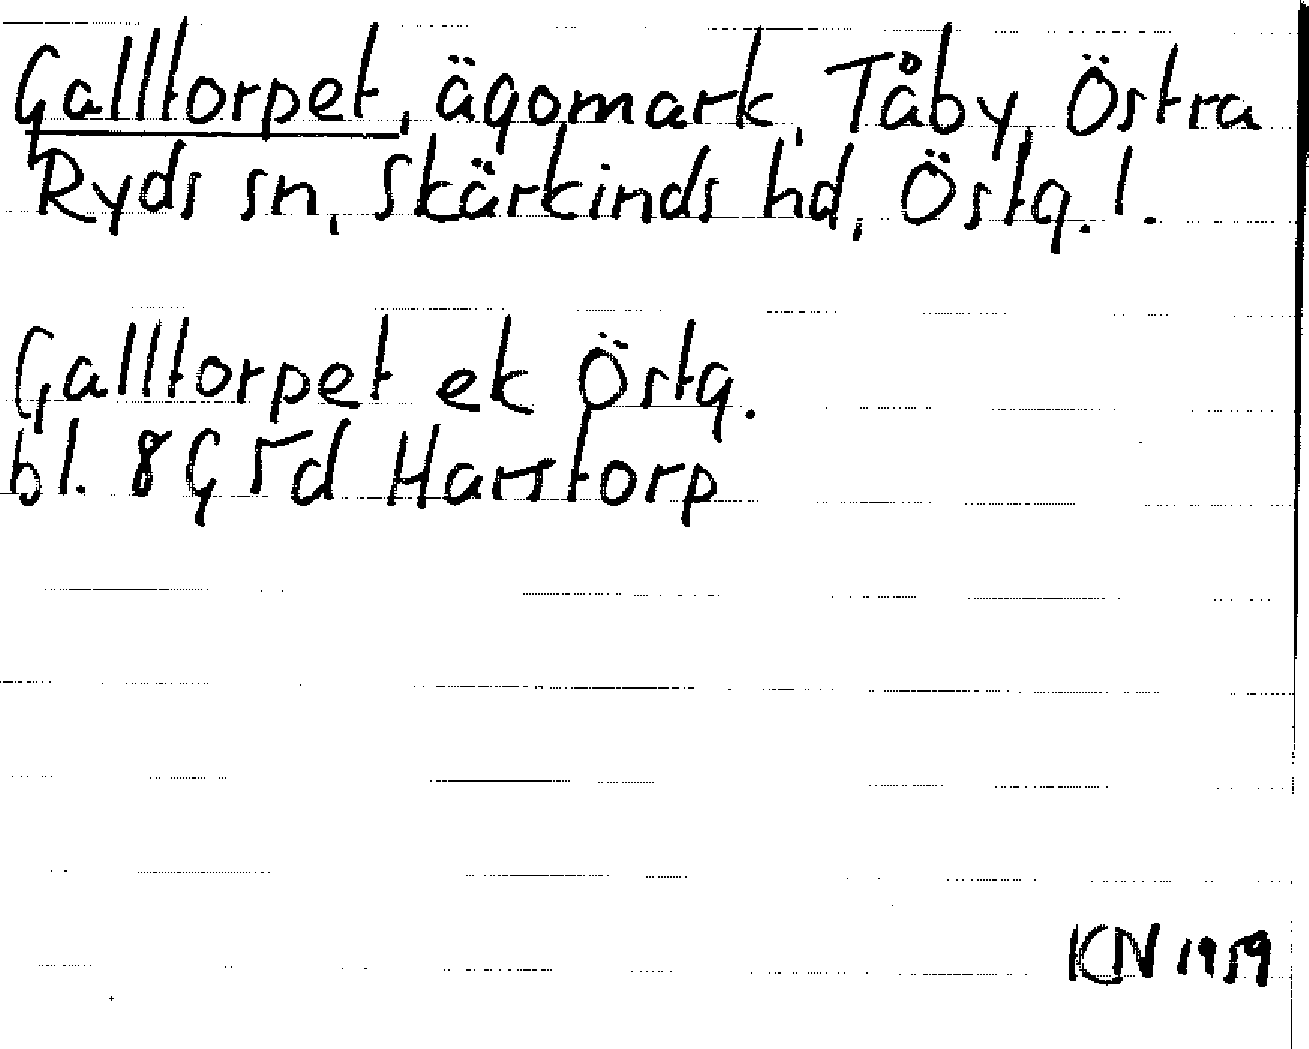 Galltorpet, ägomark, Tåby, Östra
Ryds sn, Skärkinds hd, Östg. l.
Galltorpet ek Östg.
bl. 8G 5d Harstorp
KN 1959